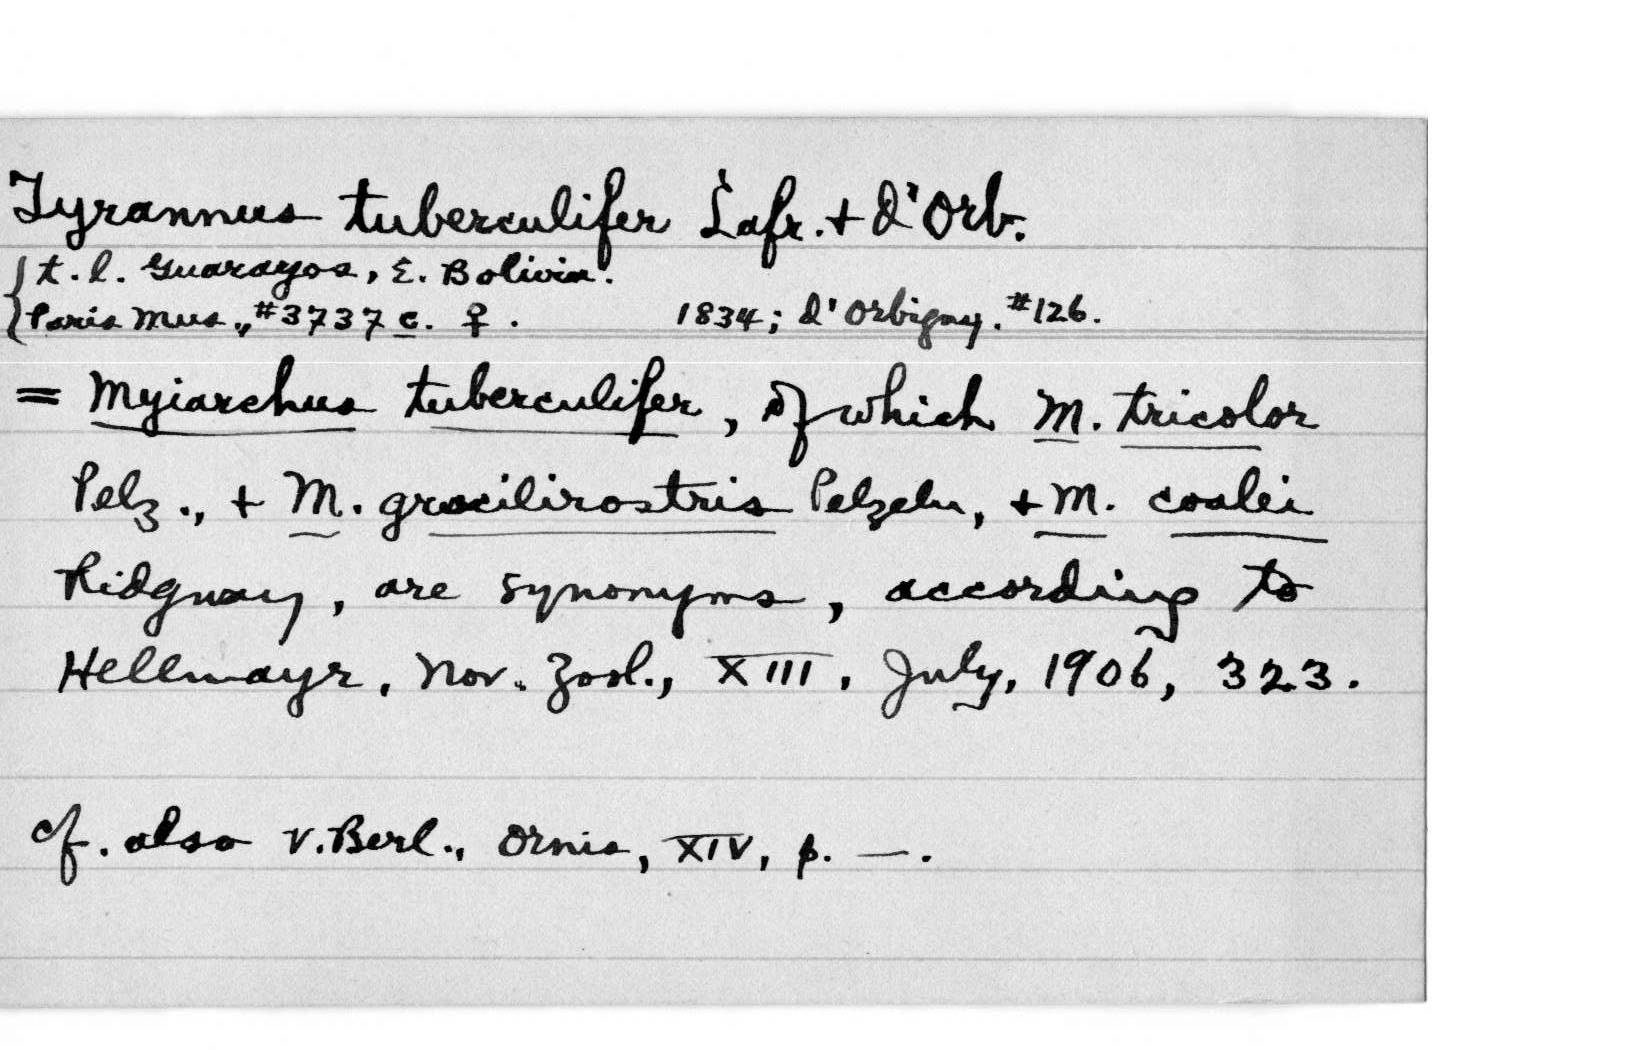 Tyrannus tuberculifer Lafr. + d'Orb.
t. l. Guarayos, E. Bolivia.
Paris Mus., #3737 c. ♀. 1834; d'Orbigny. #126.
= Myiarchus tuberculifer, of which M. tricolor
Pelz., + M. gracilirostris Pelzeln, + M. coalei
Ridgway, are synonyms, according to
Hellmayr, Nov. Zool., XIII, July, 1906, 323.
cf. also v. Berl., Ornis, XIV, p. —.